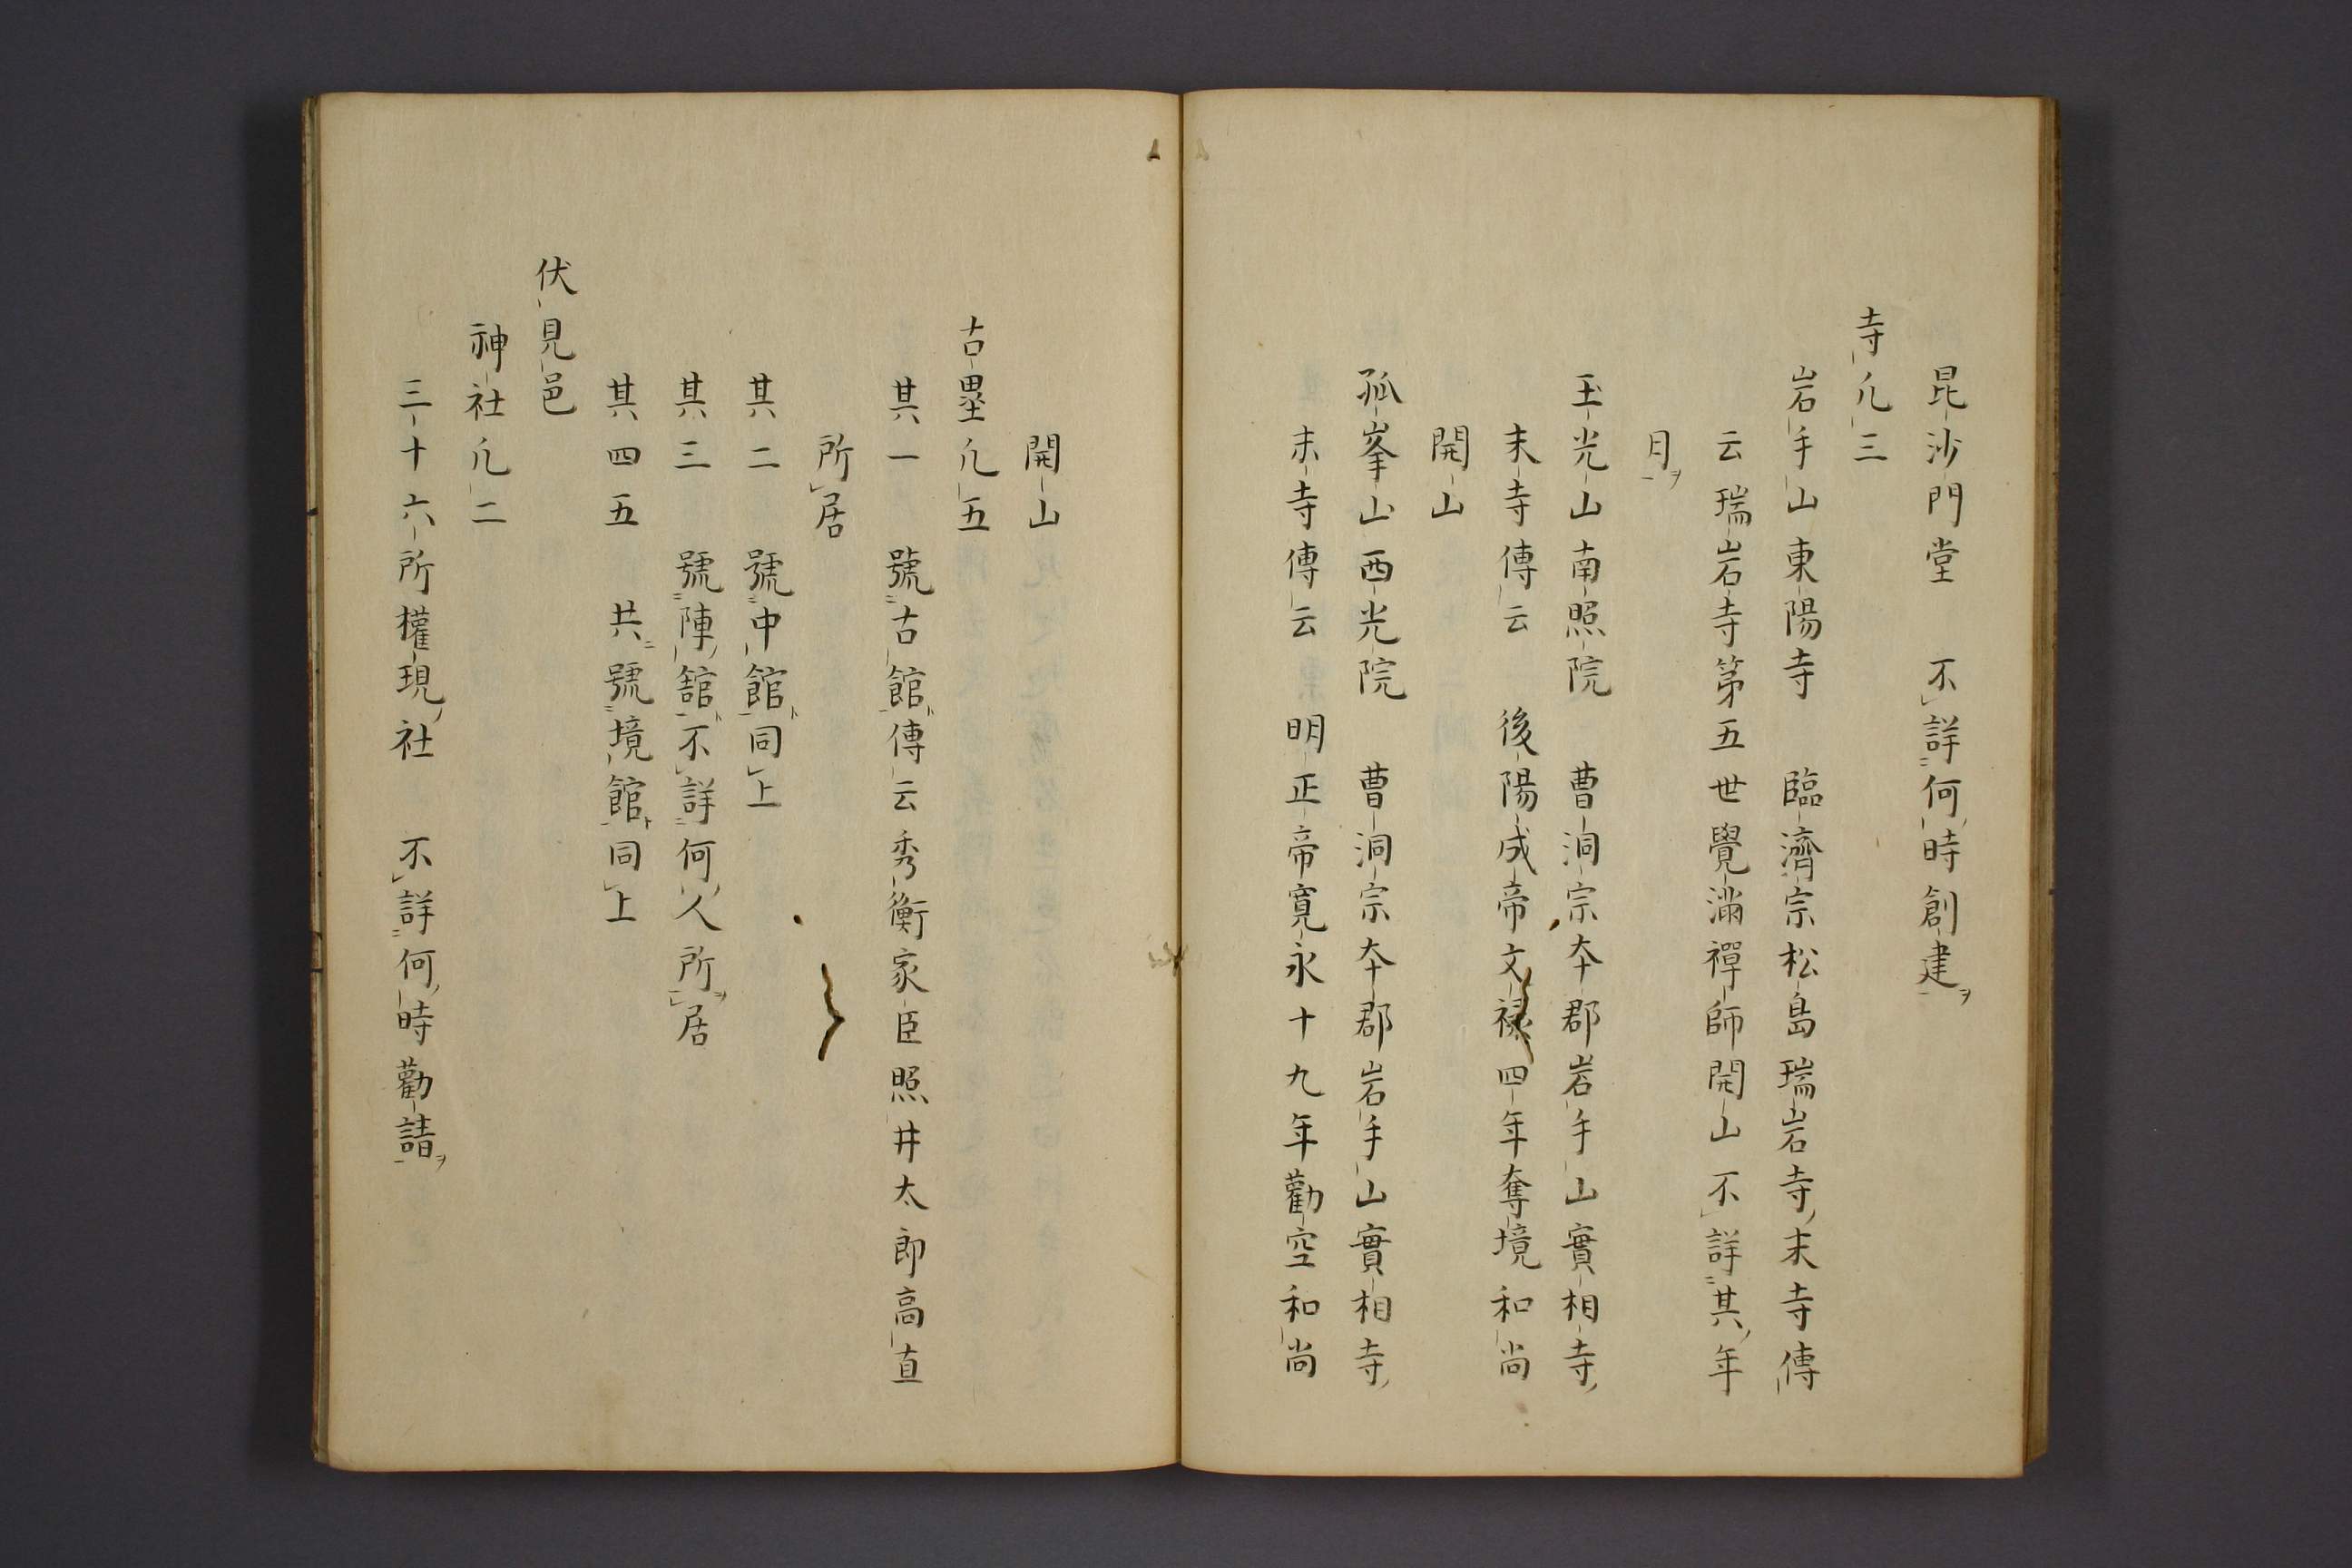 昆沙門堂　不詳何時創建
寺凢三
岩手山東陽寺　臨濟宗松島瑞岩寺末寺傳
云瑞岩寺第五世覺滿禪師開山不詳其年
月
玉光山南照院　曹洞宗夲郡岩手山實相寺
末寺傳云　後陽成帝文禄四年奪境和尚
開山
孤峯山西光院　曹洞宗夲郡岩手山實相寺
末寺傳云　明正帝寛永十九年勸空和尚
開山
古壘凢五
其一　號古館傳云秀衡家臣照井太郎高直
所居
其二　號中館同上
其三　號陣館不詳何人所居
其四五　共號境館同上
伏見邑
神社凢二
三十六所權現社　不詳何時勸請